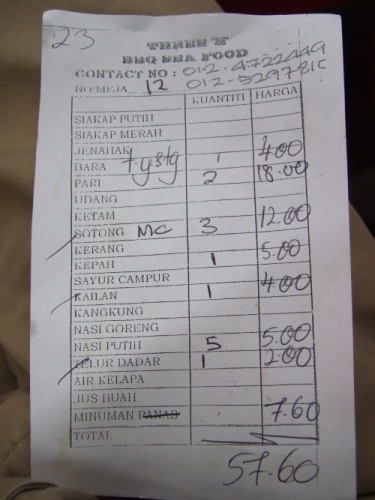 23
THREE M
BBQ SEA FOOD
CONTACT NO : 012-4722449
NO:MEJA 12
KUANTITI HARGA
SIAKAP PUTIH
SIAKAP MERAH
JENAHAK
BARA 1 4.00
PARI 2 18.00
UDANG
KETAM
SOTONG MC 3 12.00
KERANG
KEPAH 1 5.00
SAYUR CAMPUR
KAILAN 1 4.00
KANGKUNG
NASI GORENG
NASI PUTIH 5 5.00
TELUR DADAR 1 2.00
AIR KELAPA
JUS BUAH
MINUMAN PANAS 7.60
TOTAL
57.60